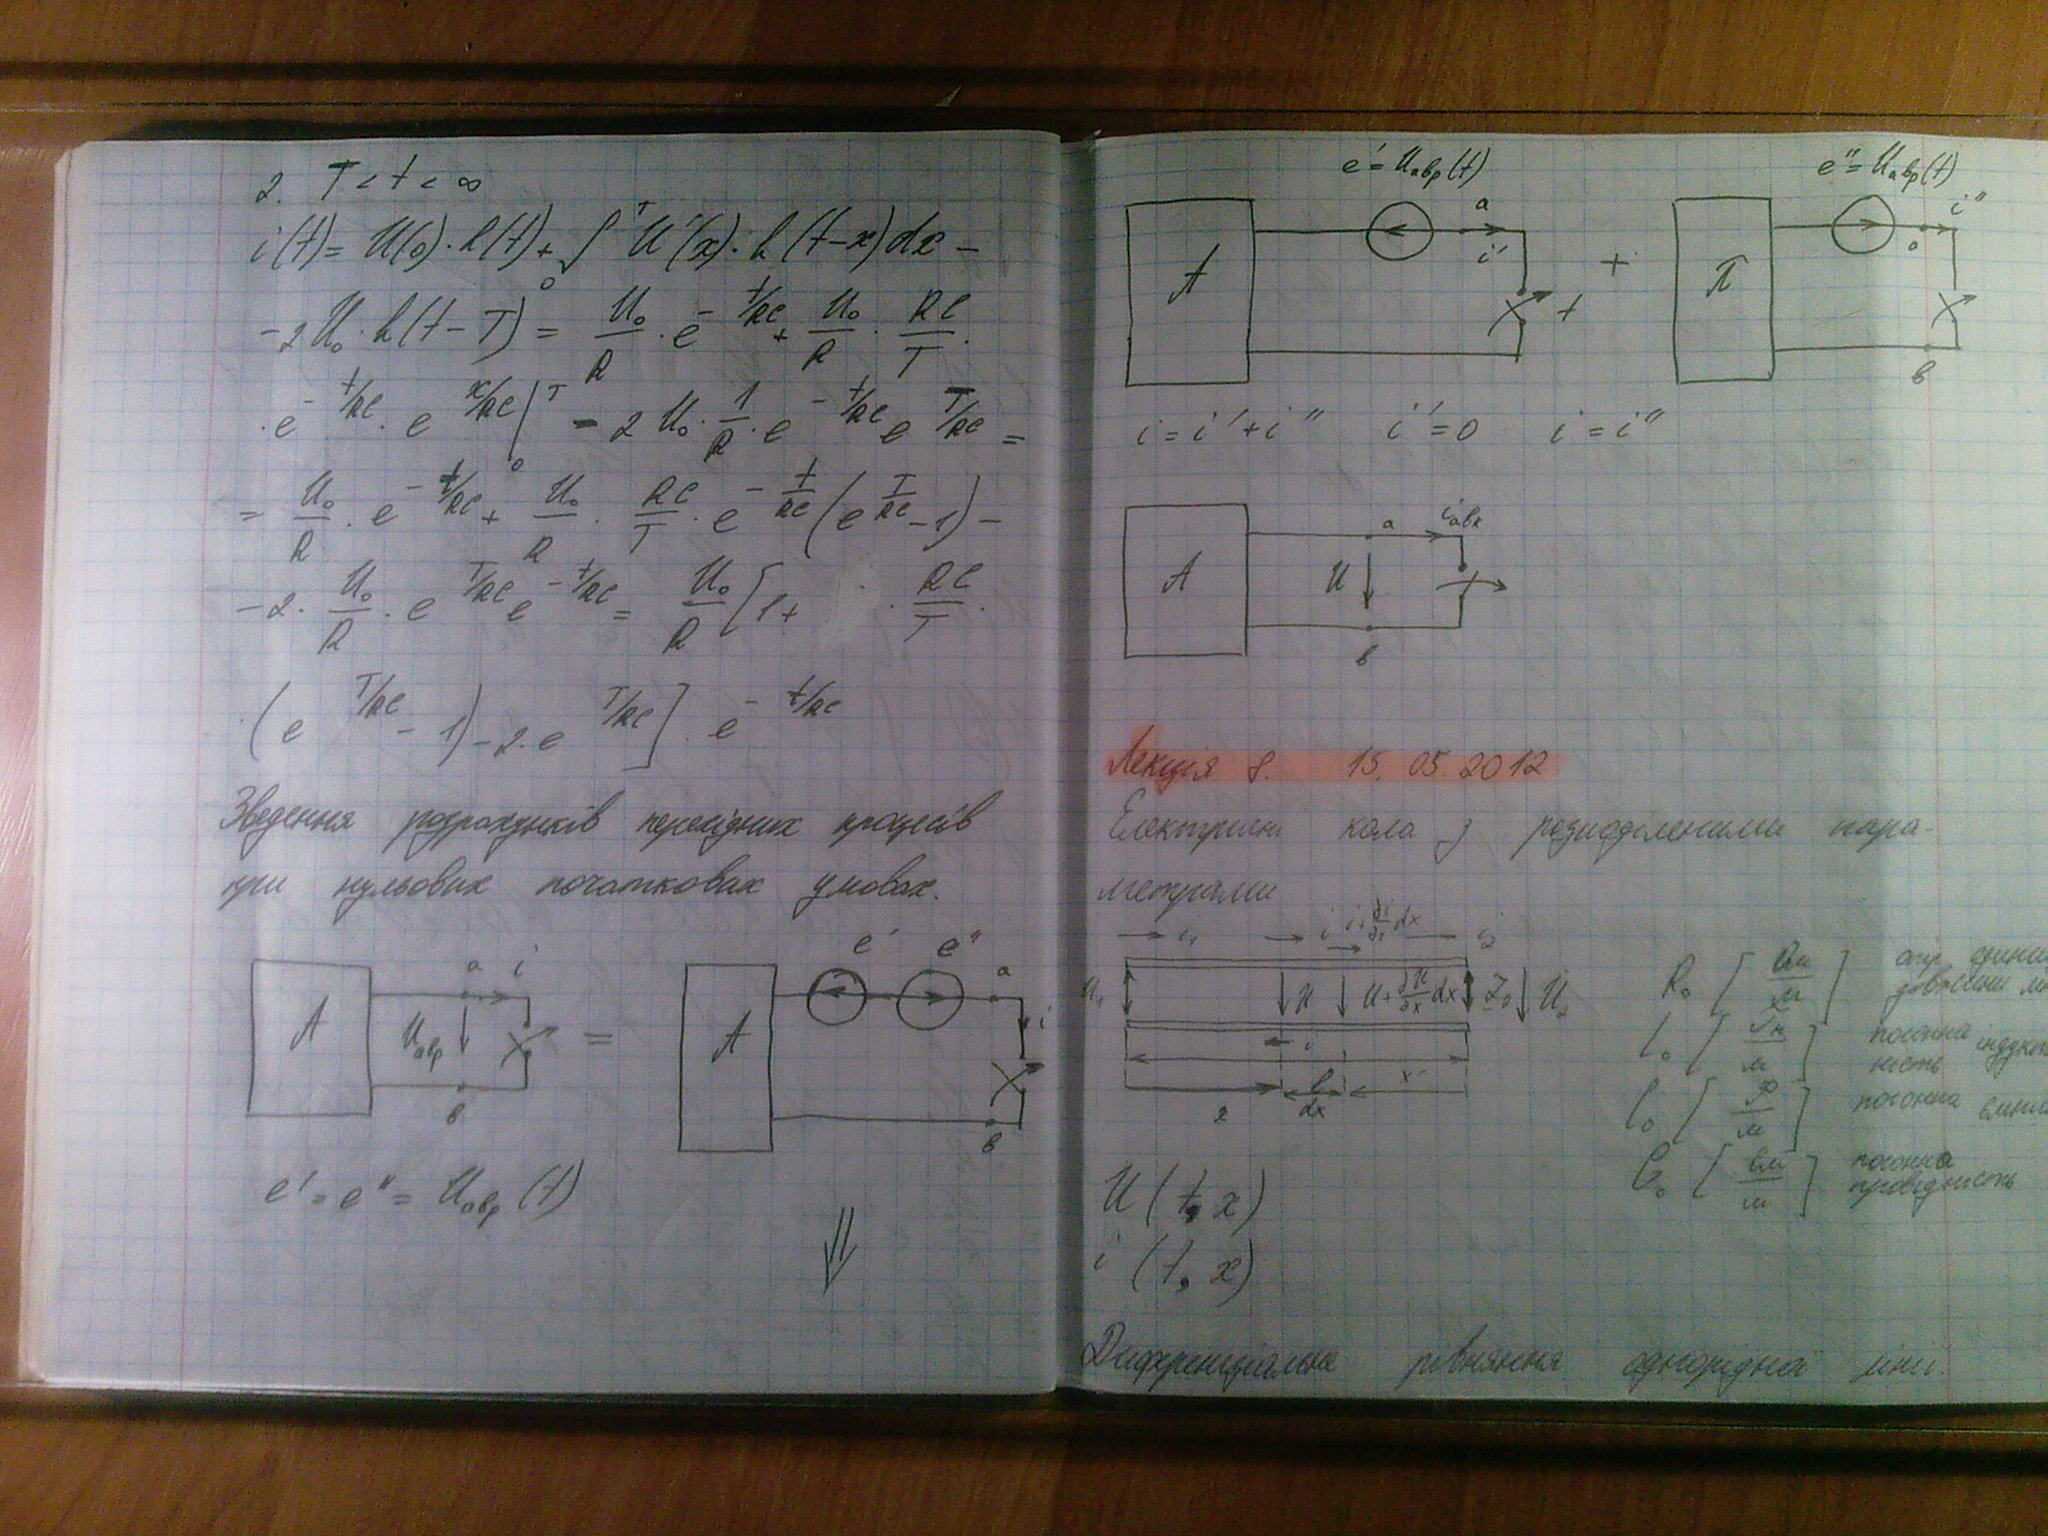 2. T < t < ∞
i(t) = U(0)·h(t) + ∫₀ᵀ U'(x)·h(t-x)dx -
-2U₀·h(t-T) = U₀/R · e^(-t/RC) + U₀/R · RC/T ·
· e^(-t/RC) · e^(x/RC) |₀ᵀ - 2U₀ · 1/R · e^(-t/RC) e^(T/RC) =
= U₀/R · e^(-t/RC) + U₀/R · RC/T · e^(-t/RC) (e^(T/RC) - 1) -
-2 · U₀/R · e^(T/RC) e^(-t/RC) = U₀/R [1 + · RC/T ·
· (e^(T/RC) - 1) - 2·e^(T/RC)] · e^(-t/RC)
Зведення розрахунків перехідних процесів
при нульових початкових умовах.
A a i Uавр в = A e' e'' a i в
e' = e'' = Uавр(t)
e' = Uавр(t)
A a i' +
e'' = Uавр(t)
П i'' в
i = i' + i'' i' = 0 i = i''
A a U в
Лекція 8. 15.05.2012
Електричні кола з розподіленими пара-
метрами
i₁ i i+∂i/∂x dx i₂
U₁ U U+∂U/∂x dx Z₀ U₂
i
x'
dx
R₀ [Ом/м]
L₀ [Гн/м] погонна індуктивність
C₀ [Ф/м] погонна
G₀ [См/м] погонна провідність
U (t, x)
i (t, x)
Диференціальні рівняння однорідної лінії.